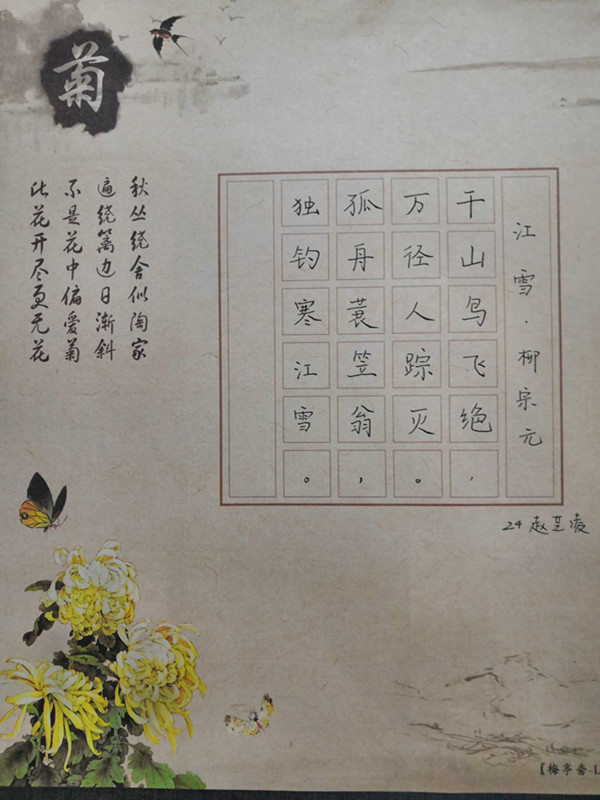 菊
秋丛绕舍似陶家
遍绕篱边日渐斜
不是花中偏爱菊
此花开尽更无花
江雪·柳宗元
千山鸟飞绝，
万径人踪灭。
孤舟蓑笠翁，
独钓寒江雪。
24 赵
【梅亭斋·L